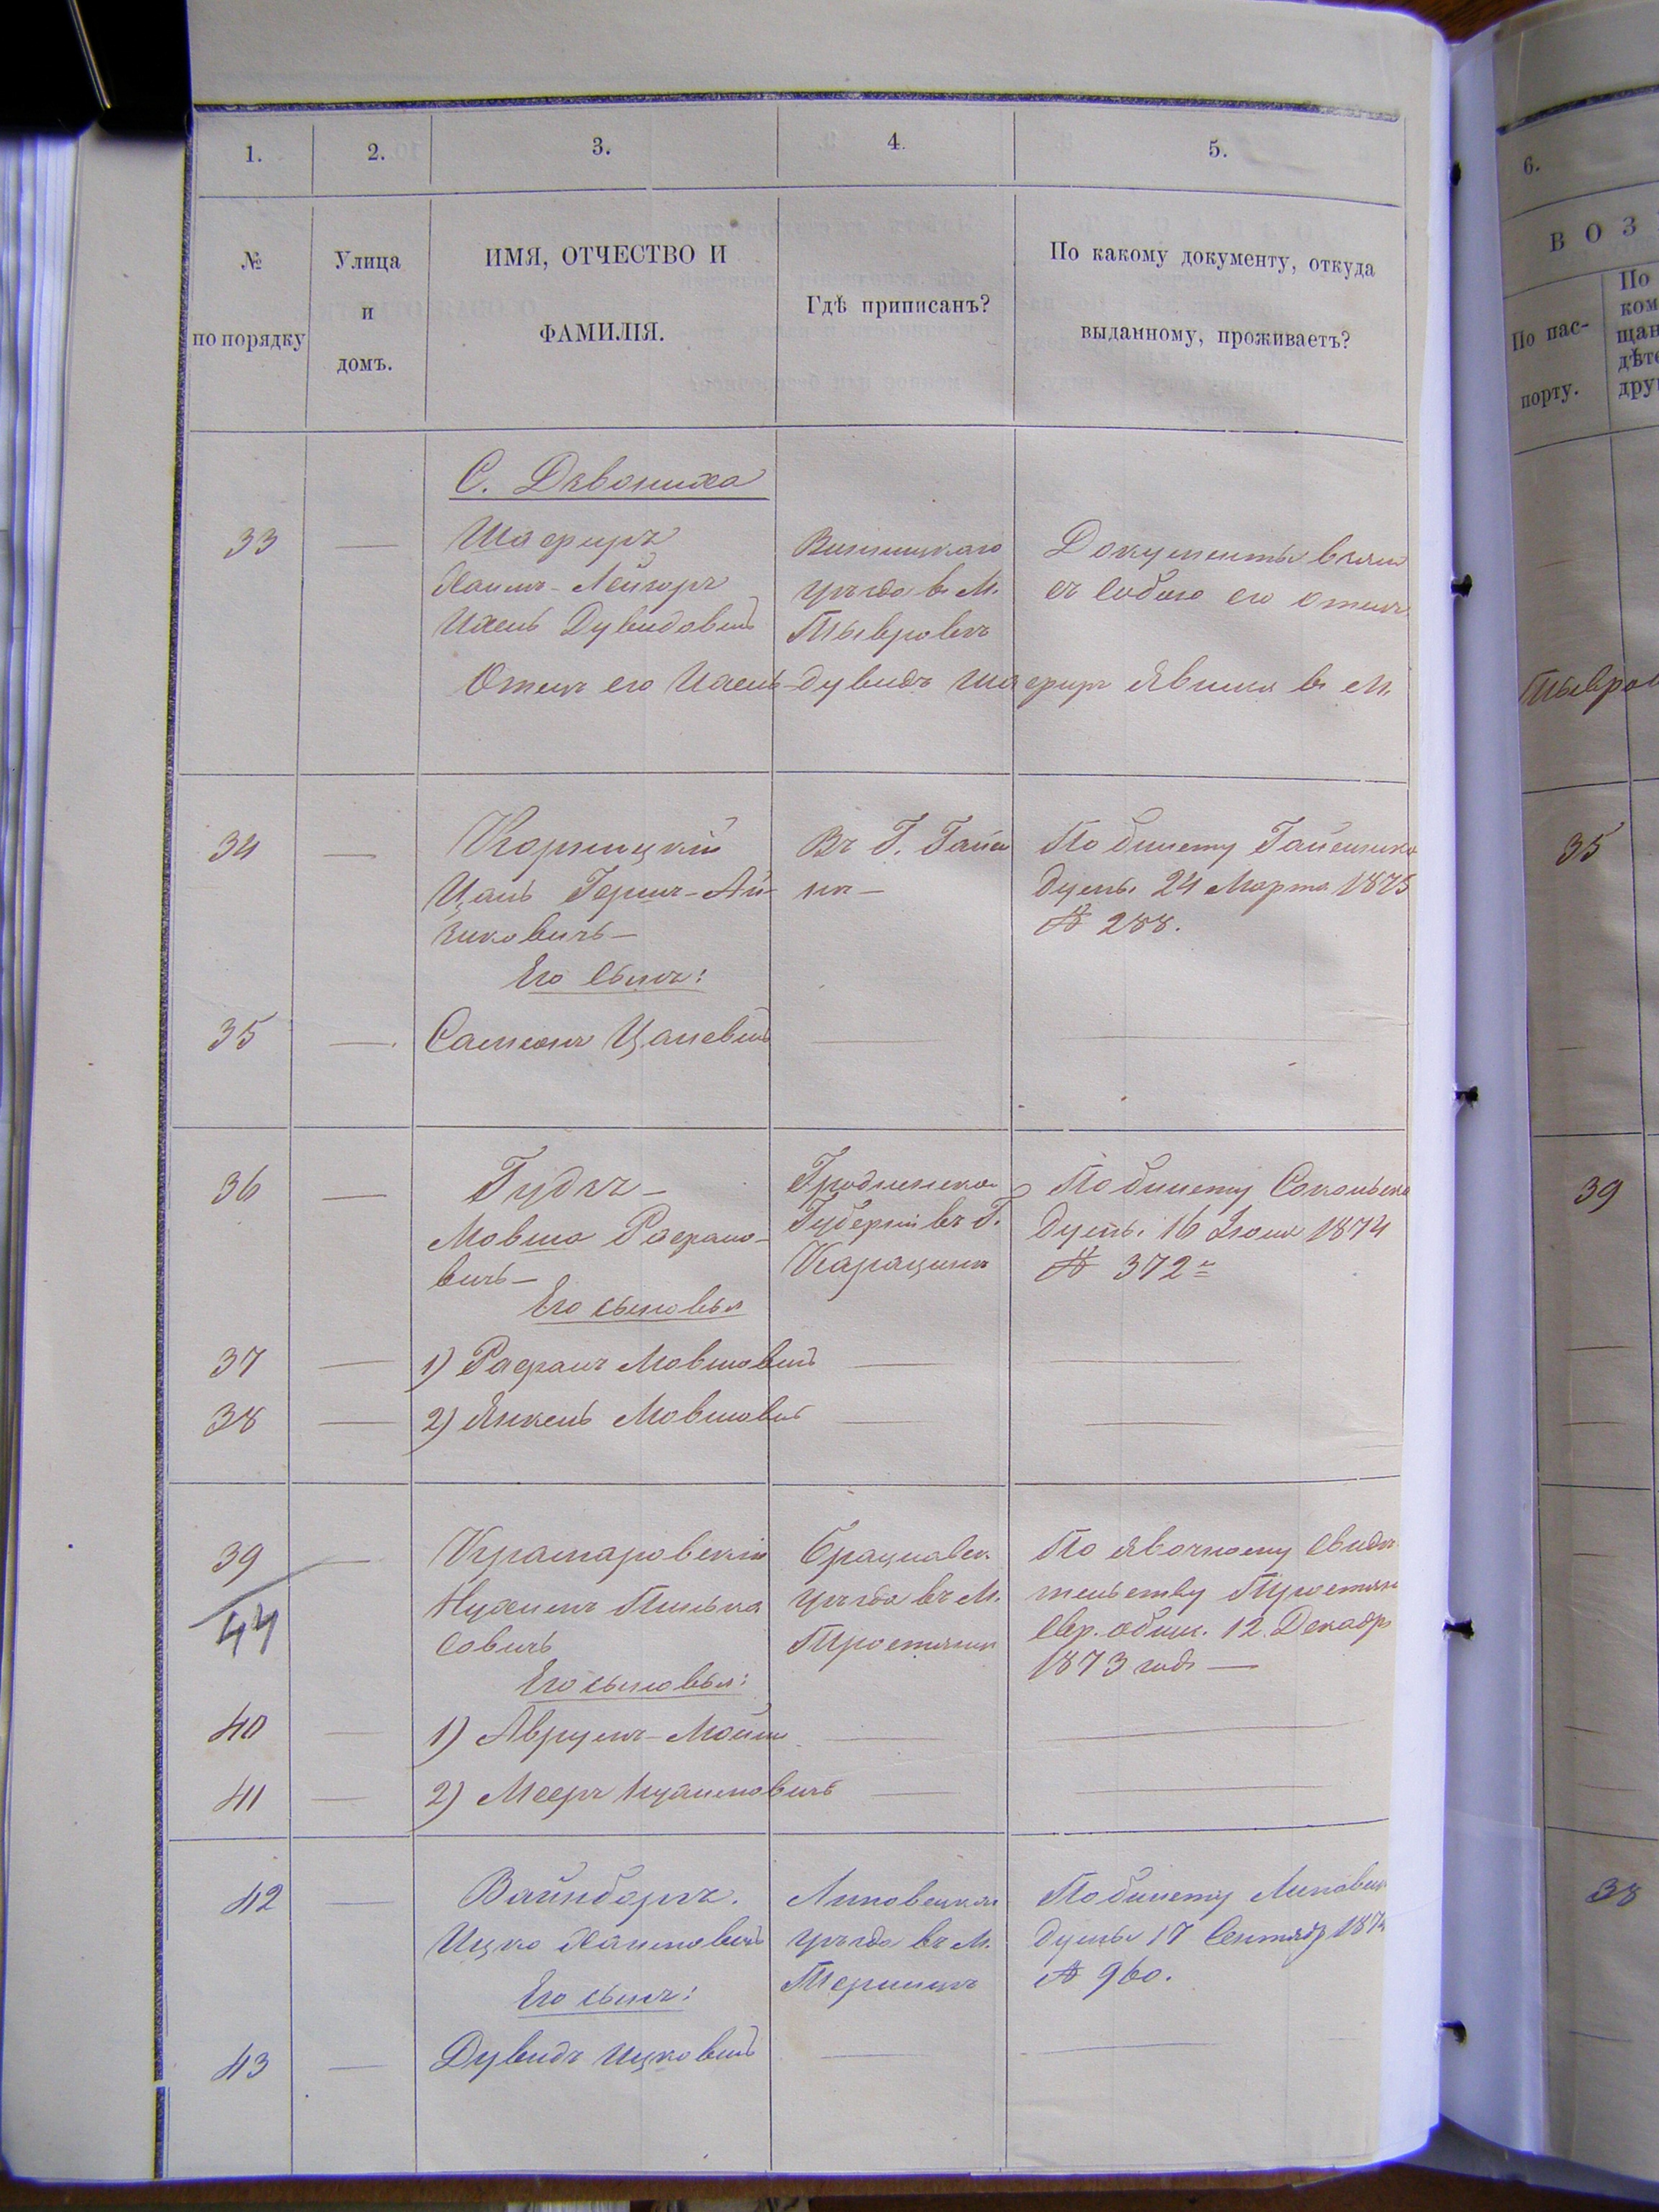 1.
2.
3.
4.
5.
№
по порядку
Улица
и
домъ.
ИМЯ, ОТЧЕСТВО И
ФАМИЛІЯ.
Гдѣ приписанъ?
По какому документу, откуда
выданному, проживаетъ?
С. Дзвониха
33
—
Шафиръ
Хаимъ-Лейзоръ
Ихель Дувидовичъ
Винницкаго
уѣзда в М.
Тывровѣ
Документы взялъ
съ собою его отецъ
Отецъ его Ихель-Дувидъ Шафиръ явился в М.
34
—
Корницкій
Цаль Гершъ-Ай-
зиковичъ—
Въ Г. Гайси
нѣ—
По билету Гайсинско
Думы 24 Марта 1875
№ 288.
Его сынъ:
35
—
Самсонъ Цалевичъ
36
—
Гудзъ—
Мовша Рафало-
вичъ—
Гродненской
Губерніи въ Г.
По билету Сокольско
Думы 16 Іюля 1874
№ 372
Его сыновья
37
—
1) Рафалъ Мовшовичъ
38
—
2) Янкель Мовшовичъ
39
44
—
Крамаровскій
Нухимъ Пинька
совичъ
Брацлавск
уѣзда въ М.
По явочному свидѣ
тельству
Евр. общ. 12 Декабр
1873 года —
Его сыновья:
40
—
1) Аврумъ-Мойше
41
—
2) Мееръ Нухимовичъ
42
—
Вайнборгъ.
Ицко Хаимовичъ
Липовецкаго
уѣзда въ М.
По билету Липовец
Думы 17 Сентябр 187
№ 960.
Его сынъ:
43
—
Дувидъ Ицковичъ
6.
ВОЗ
По пас-
порту.
По
ком
щан
дѣте
друг
Тывров
35
39
38